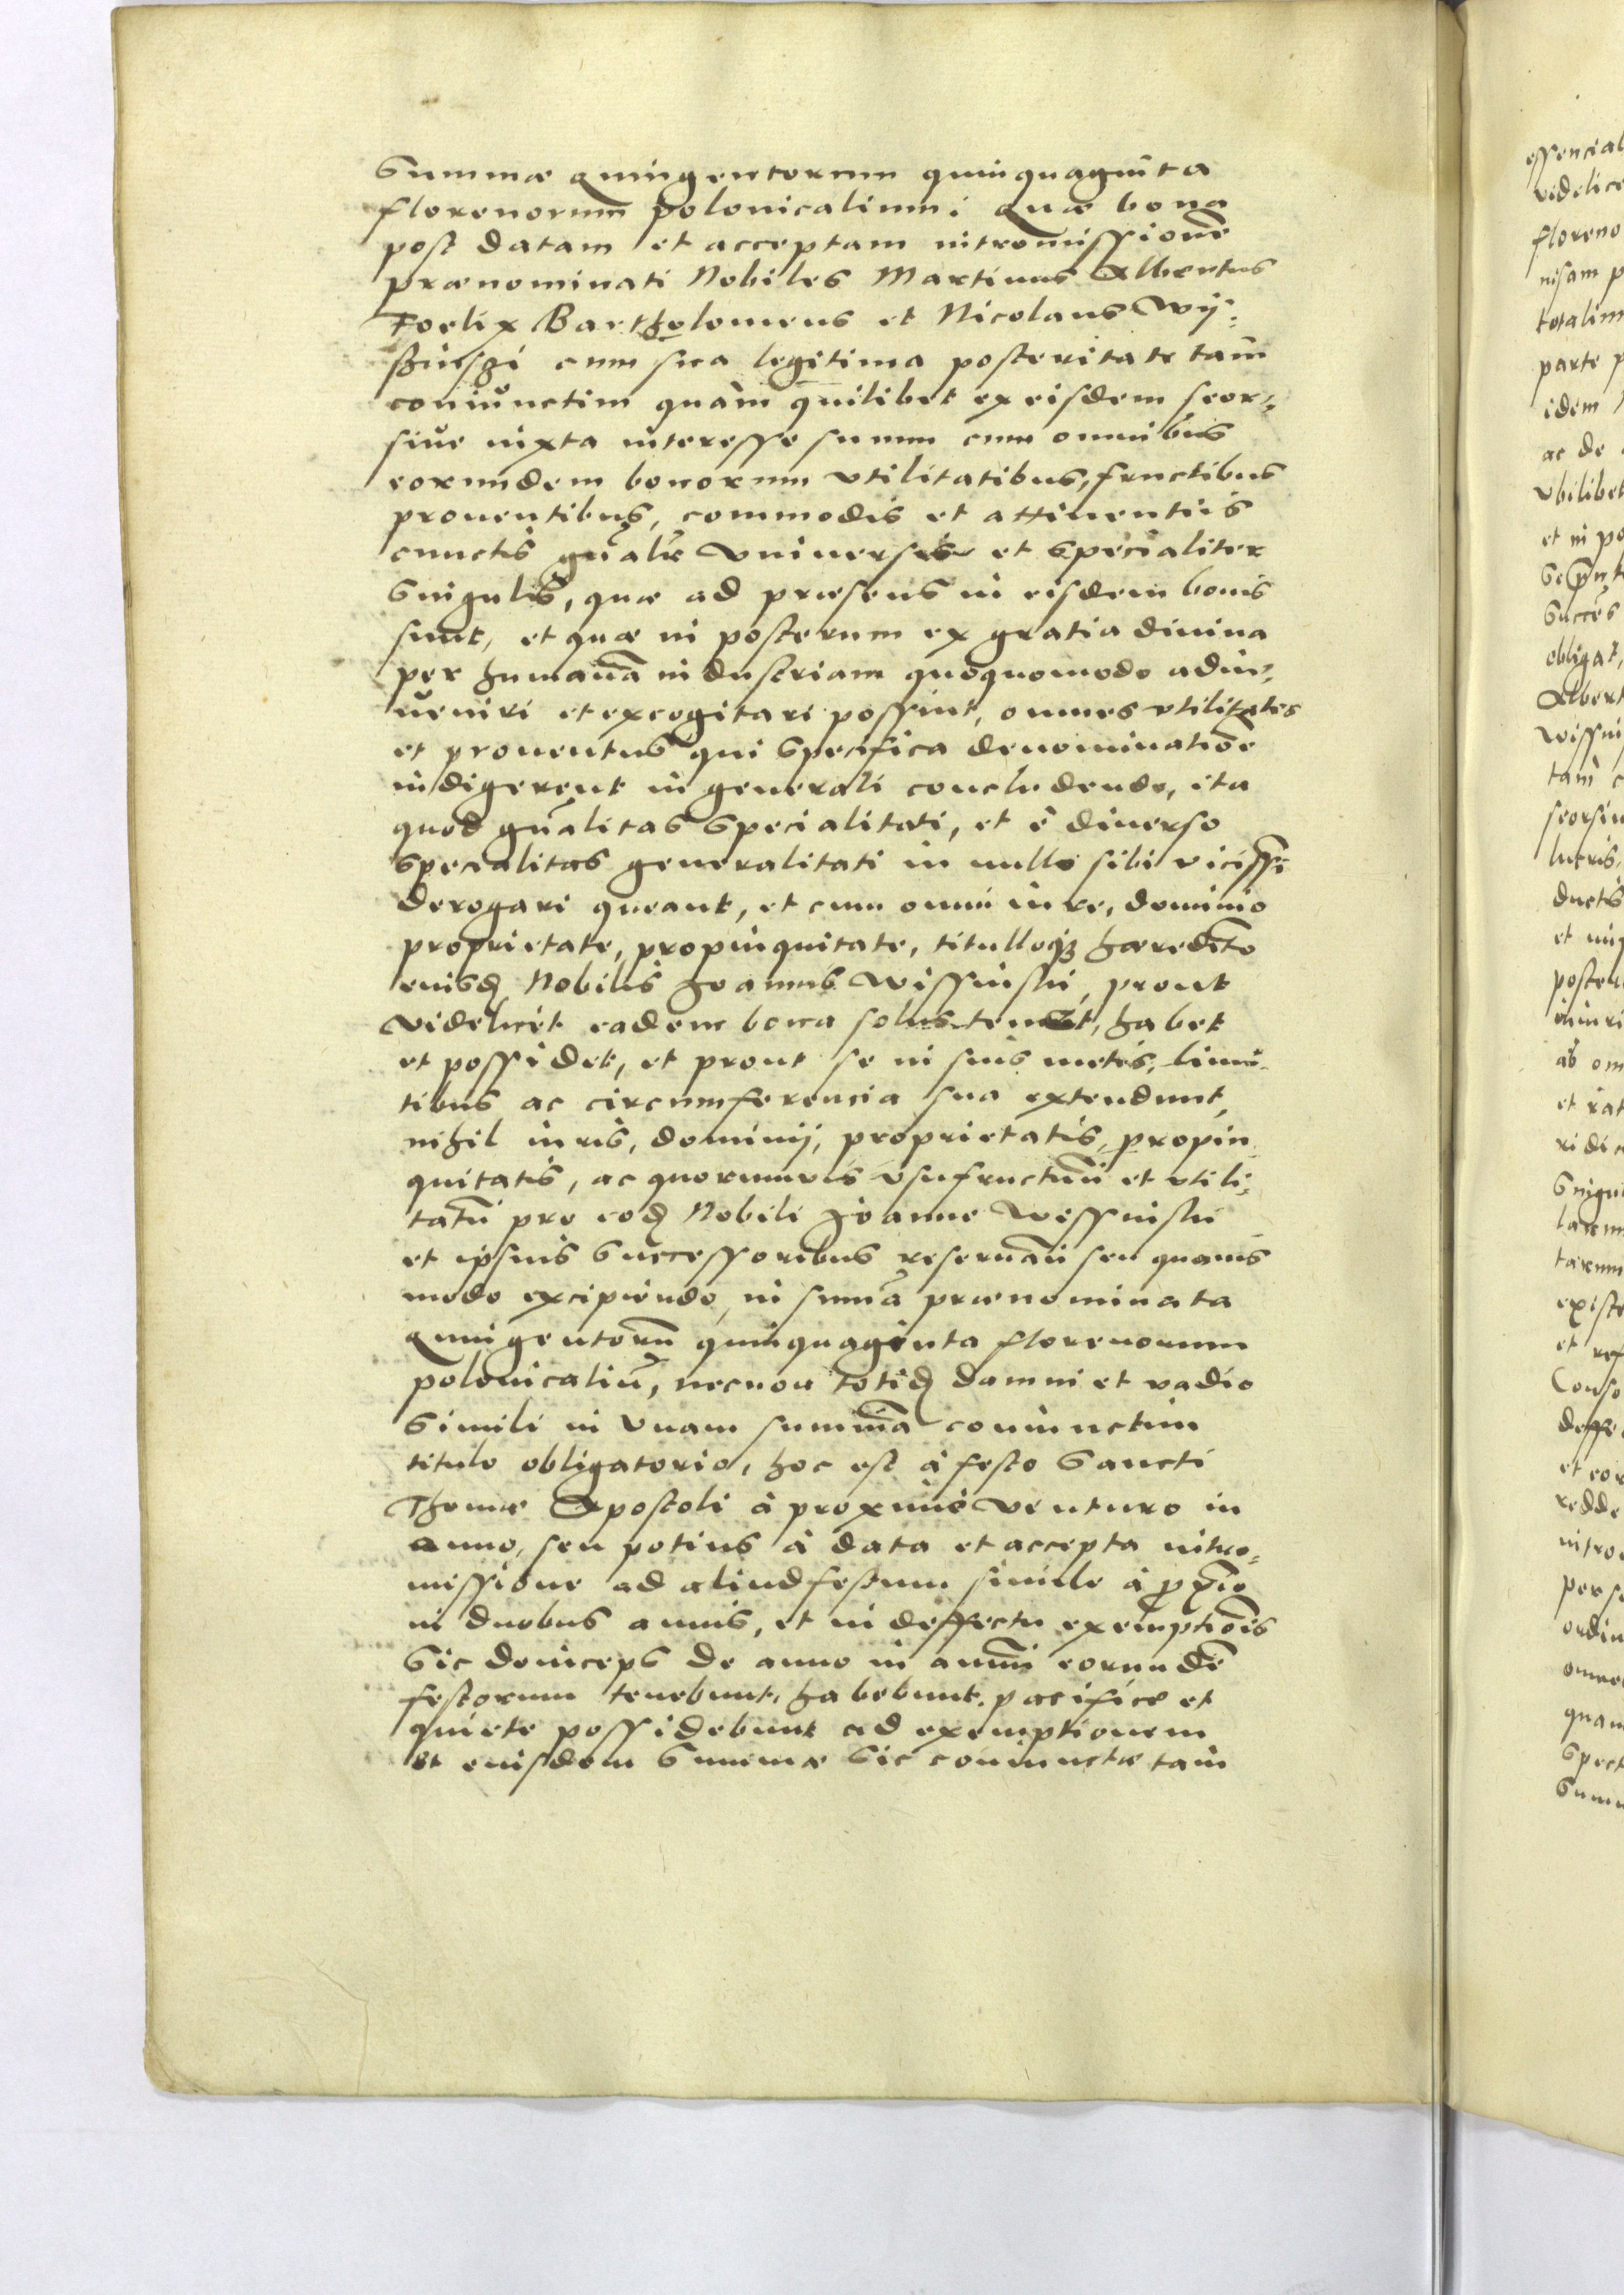 Summæ Quingentorum quinquaginta
florenorum polonicalium: Quæ bona
post datam et acceptam intromissionē
prænominati Nobiles Martinus Albertus
Foelix Bartholomeus et Nicolaus Wy-
szinszi cum sua legitima posteritate tam
coniunctim quàm quilibet ex eisdem seor-
sive iuxta interesse suum cum omnibus
eorumdem bonorum vtilitatibus, fructibus
prouentibus, commodis et attinentiis
cunctis gnālr vniversis et specialiter
singulis, quæ ad præsens in eisdem bonis
sunt, et quæ in posterum ex gratia diuina
per humanā industriam quoquomodo adin-
ueniri et excogitari possint, omnes vtilitates
et prouentus qui specifica denominatiōe
indigerent in generali concludendo, ita
quod gnālitas specialitati, et è diuerso
specialitas generalitati in nullo sibi vicissī
derogari queant, et cum omni iure, dominio
proprietate, propinquitate, titulloqȝ hæreditō
eiusd Nobilis Joannis Wissinski, prout
videlicet eadem bona solus tenet, habet
et possidet, et prout se in suis metis, limi-
tibus ac circumferencia sua extendunt,
nihil iuris, dominij, proprietatis, propin-
quitatis, ac quorumvis vsufructuū et vtili-
tatū pro eod Nobili Joanne Wissinski
et ipsius successoribus reseruādi seu quauis
modo excipiendo, in sumā prænominata
Quingentorū quinquaginta florenorum
polonicaliū, necnon totid damni et vadio
simili in vnam summā coniunctim
titulo obligatorio, hoc est à festo Sancti
Thomæ Apostoli à proximè venturo in
anno, seu potius à data et accepta intro-
missione ad aliud festum simile à pxīo
in duobus annis, et in deffectu exemptiōis
sic deinceps de anno in annū eorundē
festorum tenebunt, habebunt, pacifice et
quiete possidebunt ad exemptionem
et eiusdem Summæ sic coniunctæ tam